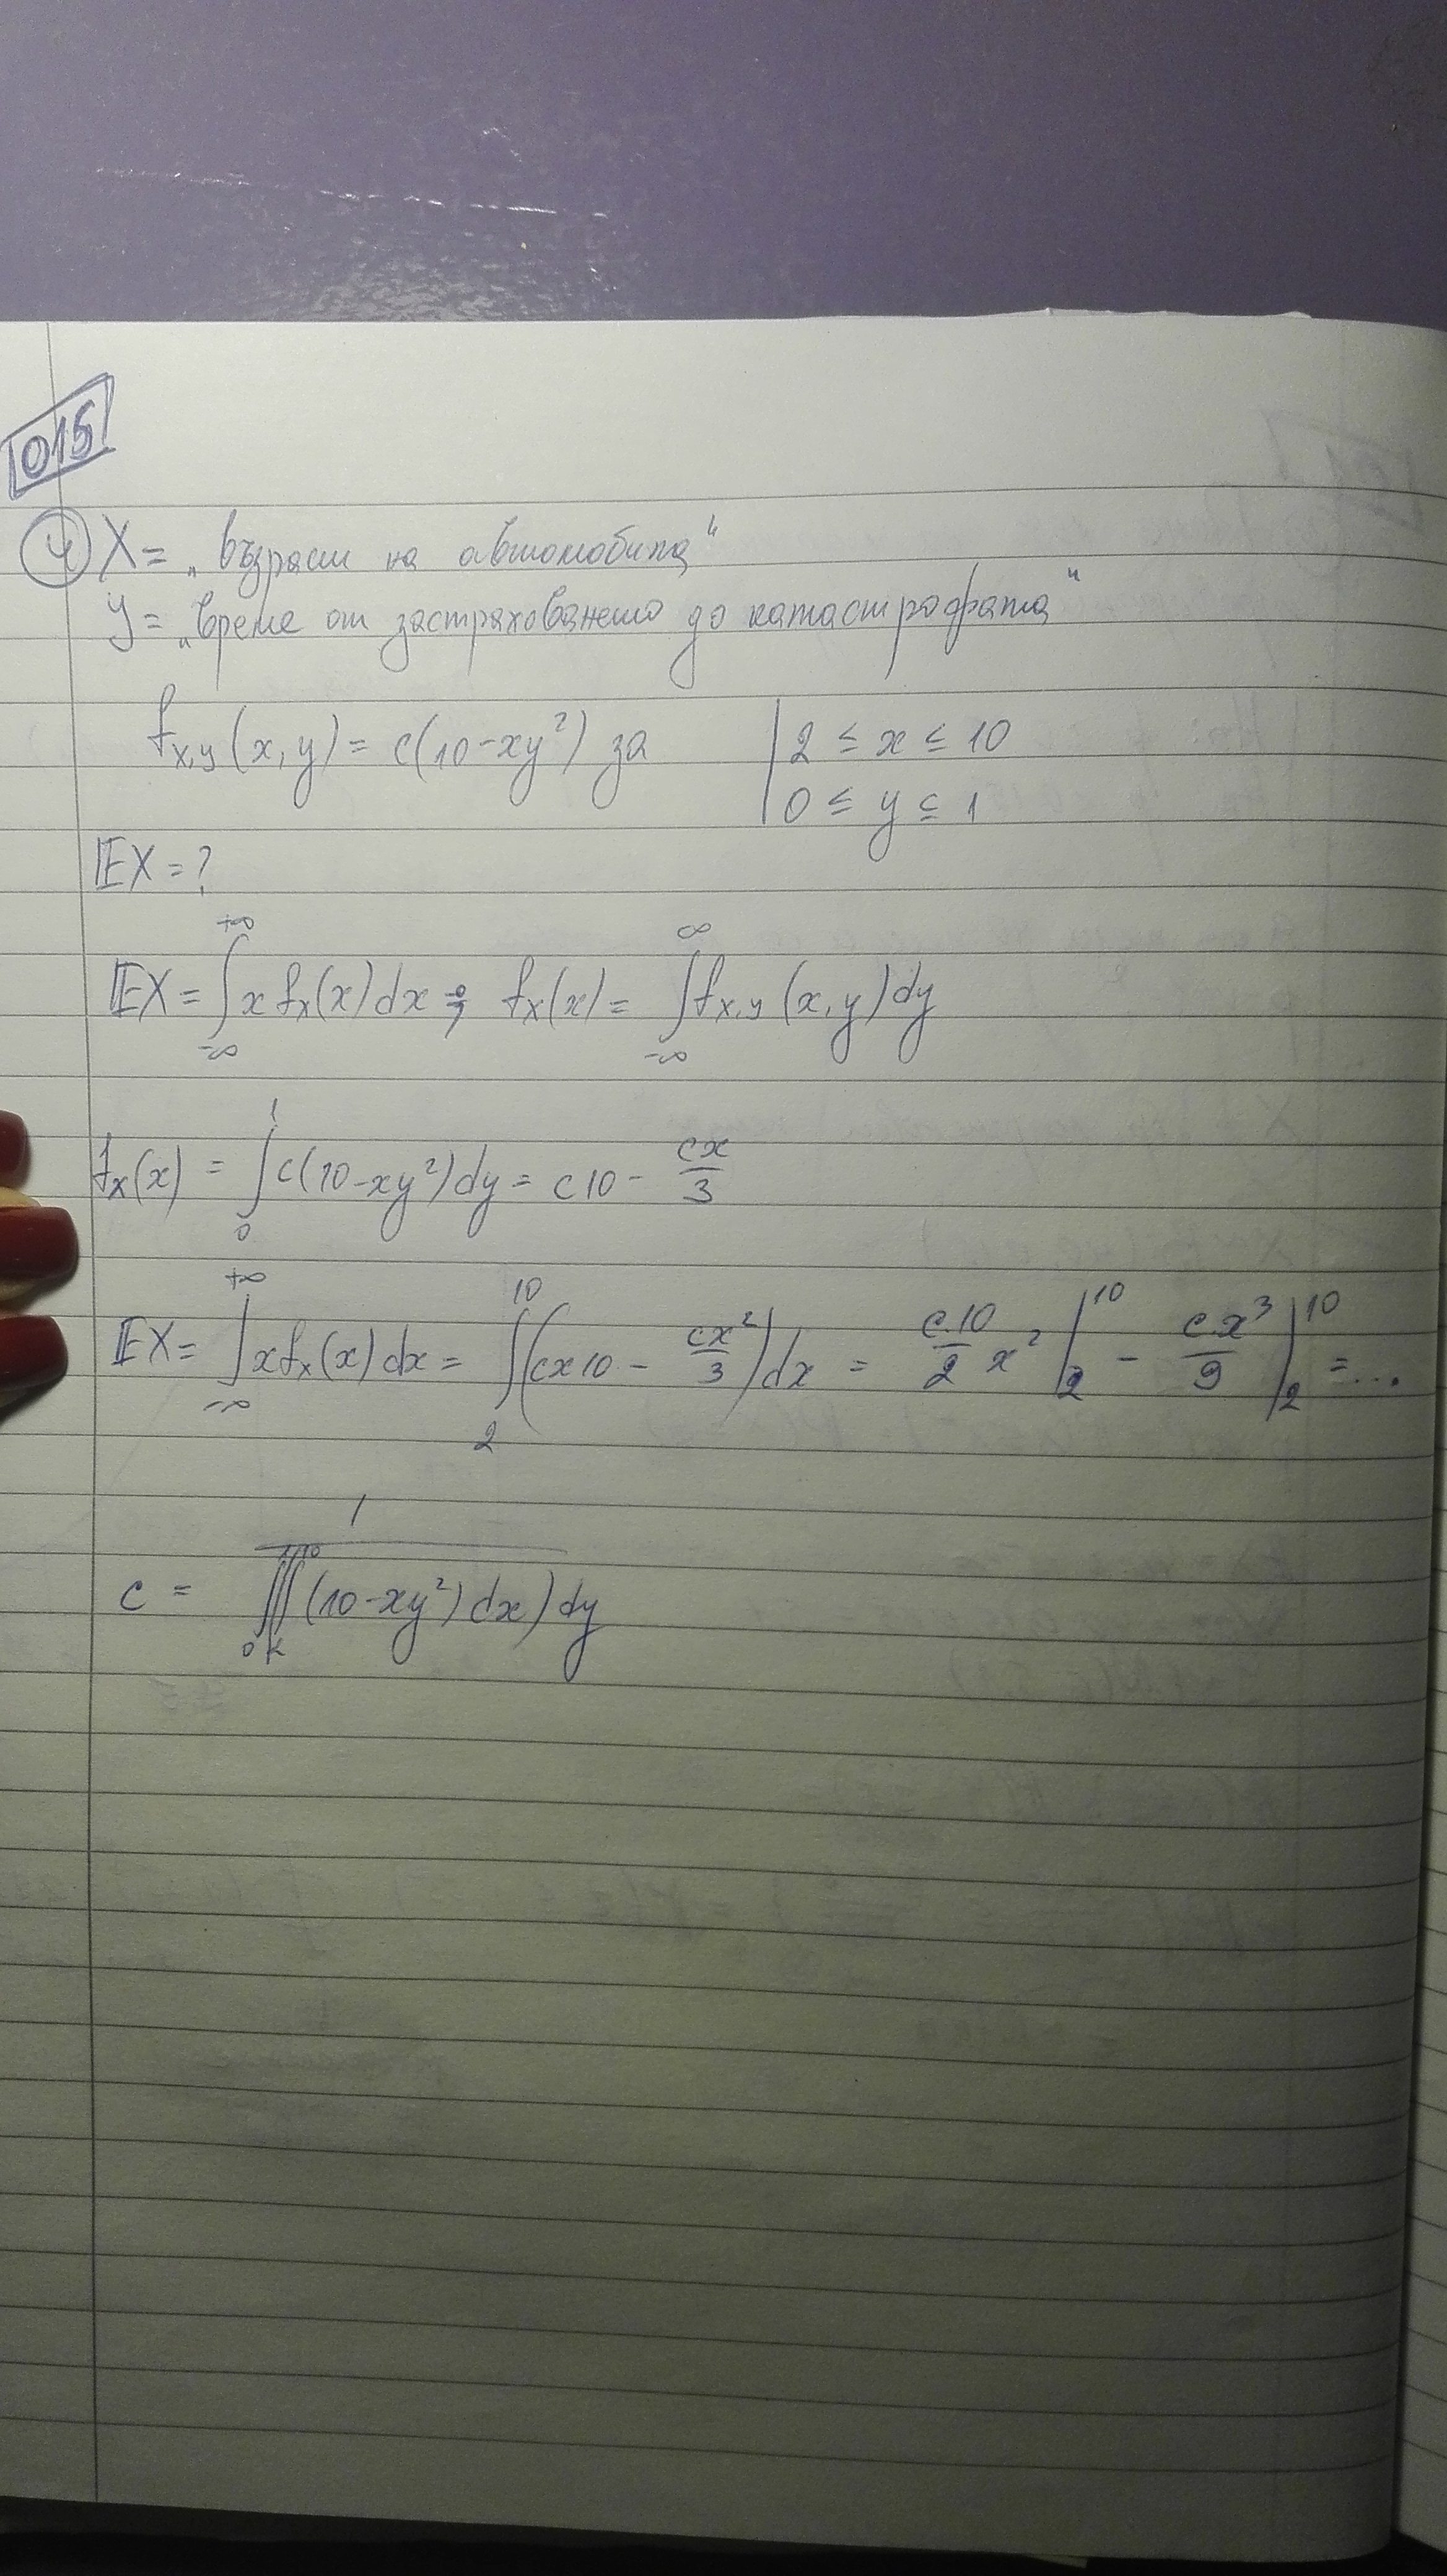 015
4 X = „възраст на автомобила“
Y = „време от застраховането до катастрофата“
f_{X,Y}(x,y) = c(10-xy²) за | 2 ≤ x ≤ 10
0 ≤ y ≤ 1
EX = ?
EX = ∫_{-∞}^{+∞} x f_X(x) dx ; f_X(x) = ∫_{-∞}^{∞} f_{X,Y}(x,y) dy
f_X(x) = ∫_0^1 c(10-xy²) dy = c10 - cx/3
EX = ∫_{-∞}^{+∞} x f_X(x) dx = ∫_2^{10} (cx10 - cx²/3) dx = c.10/2 x² |_2^{10} - c.x³/9 |_2^{10} = ...
c = 1/∫_0 ∫^{10} (10-xy²) dx) dy